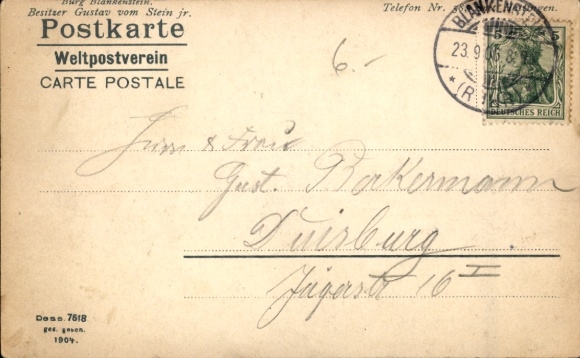 Burg Blankenstein.
Besitzer Gustav vom Stein jr.
Telefon Nr. Hattingen.
Postkarte
Weltpostverein
CARTE POSTALE
6.-
BLANKEN
23.9.05
(R
5
DEUTSCHES REICH
Herrn & Frau
Gust. Bockermann
Duisburg.
Jägerstr 16 I
Dess. 7618
ges. gesch.
1904.